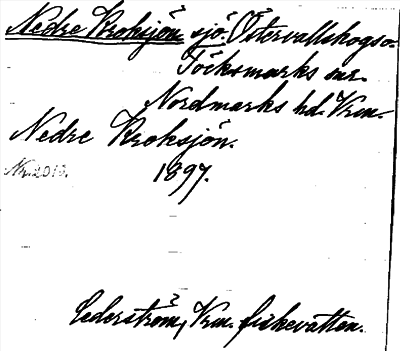 Nedre Kroksjön sjö. Östervallskogs o.
Töcksmarks snr.
Nordmarks hd. Vrm.
Nedre Kroksjön.
1897.
Cederström, Vrm. fiskevatten.